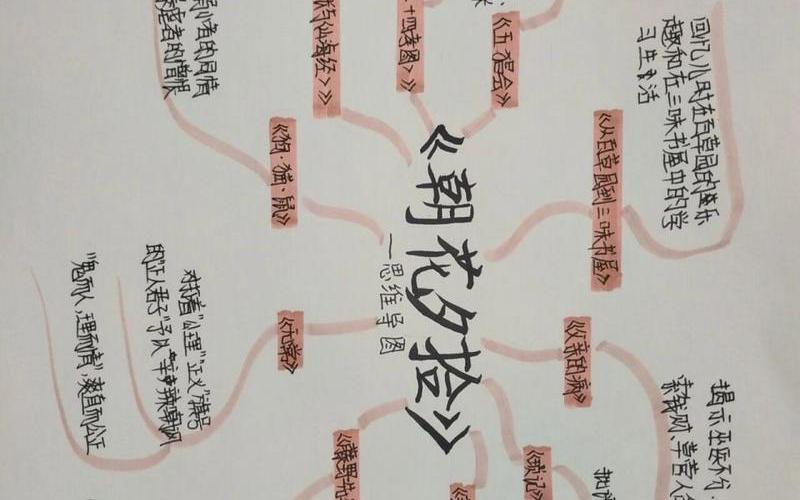 回忆小时在百草园的乐
趣和在三味书屋中的学
习生活
揭示巫医不分
索钱财、草菅人
《从百草园到三味书屋》
《父亲的病》
《琐记》
《五猖会》
十四孝图》
《朝花夕拾》
—思维导图
山海经》》
《狗·猫·鼠》
《无常》
《藤野先
小者的同情
虐者的憎恨
对打着“公理”“正义”旗号
的“正人君子”予以
“鬼而人，理而情”，爽直而公正